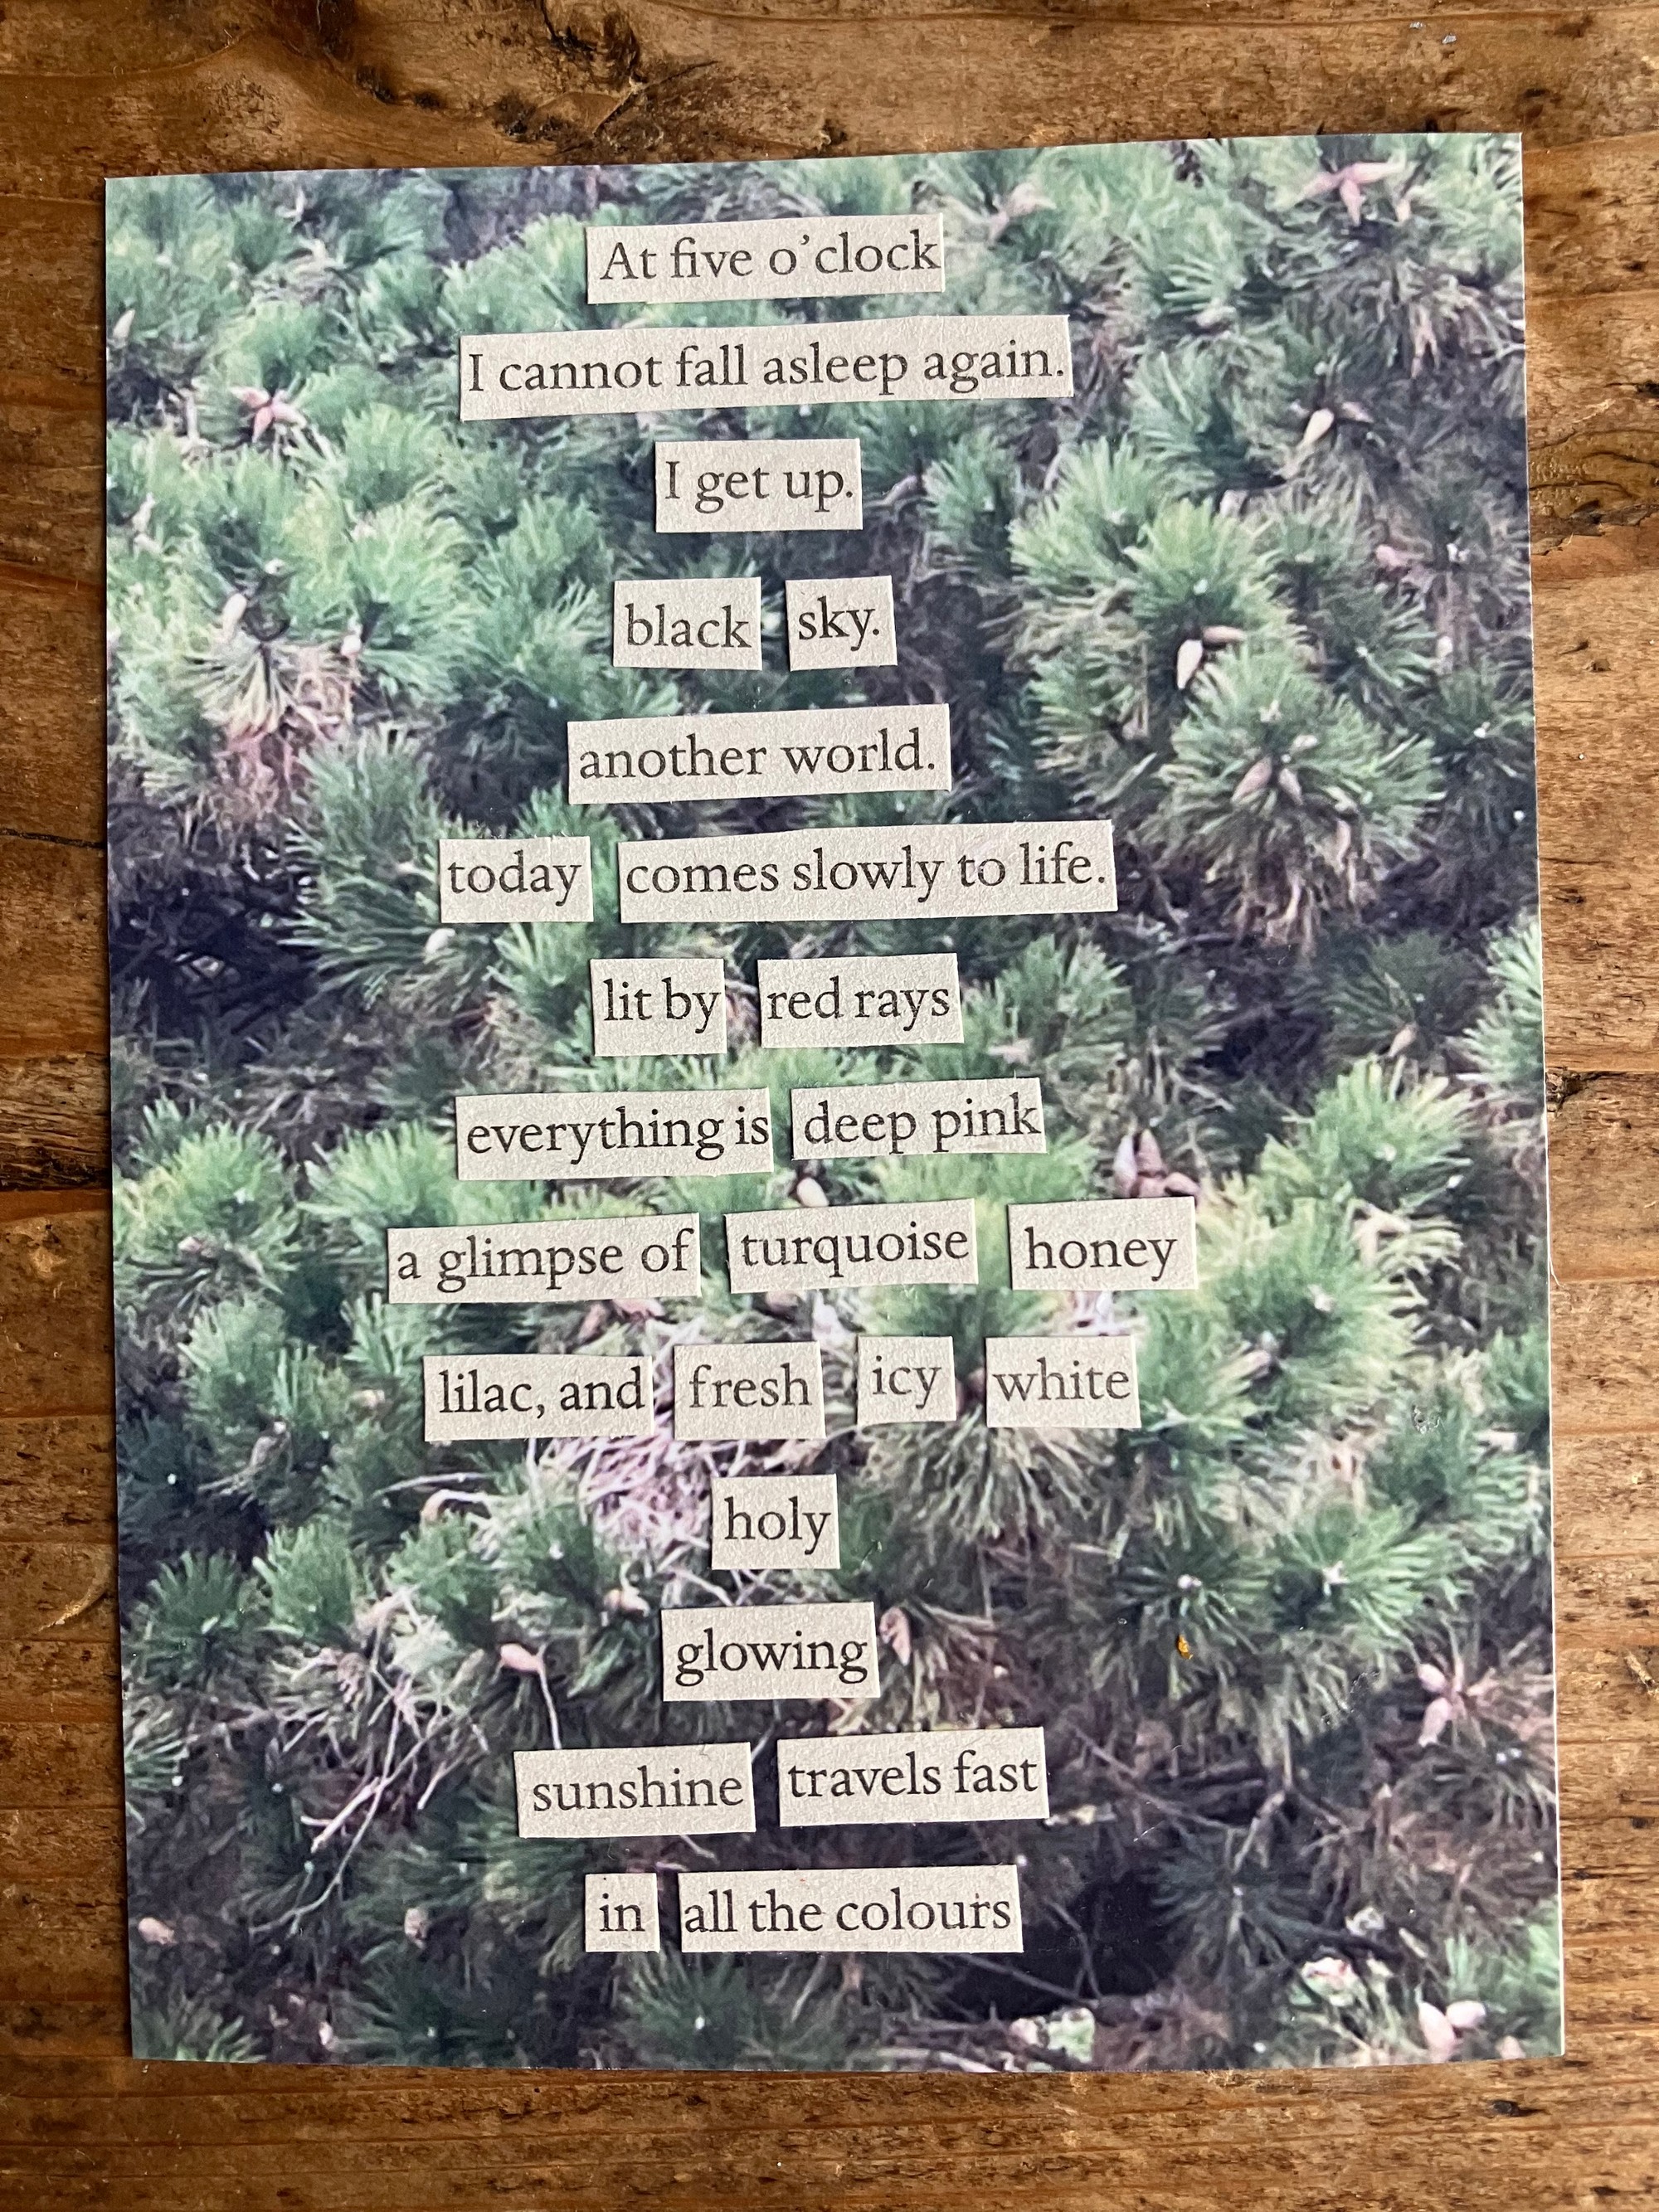 At five o'clock
I cannot fall asleep again.
I get up.
black sky.
another world.
today comes slowly to life.
lit by red rays
everything is deep pink
a glimpse of turquoise honey
lilac, and fresh icy white
holy
glowing
sunshine travels fast
in all the colours